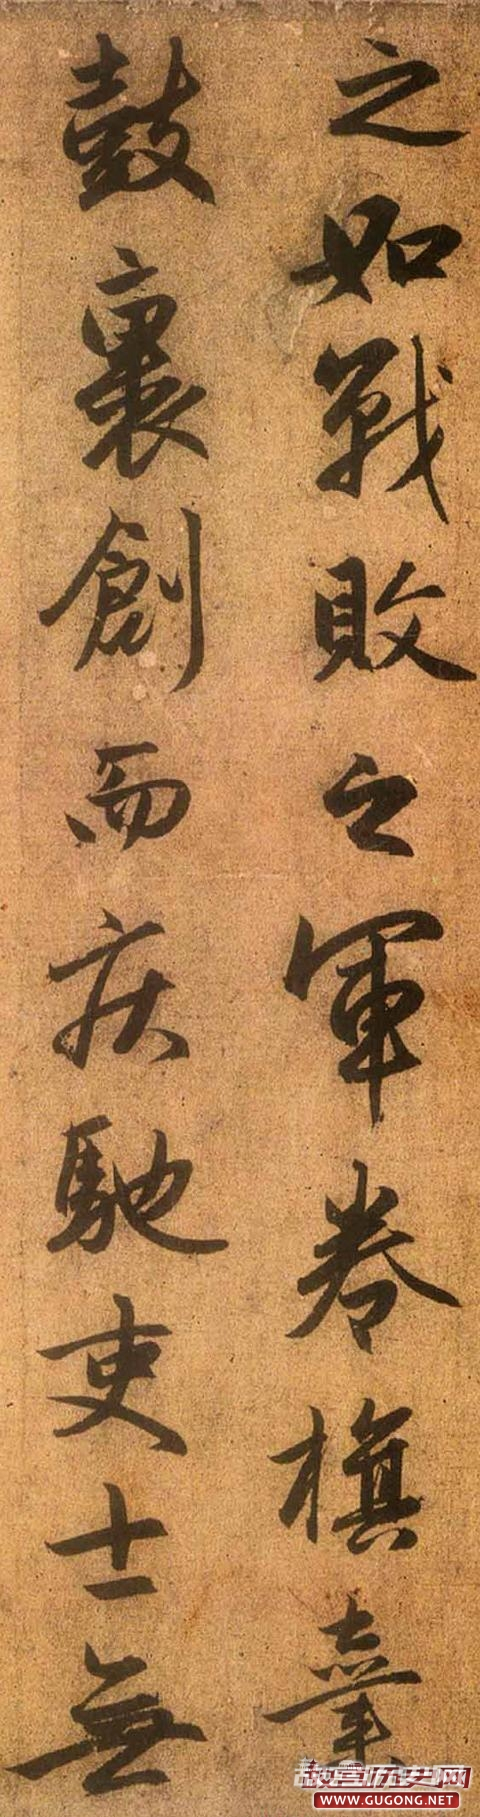 之如戰敗之軍卷旗棄
鼓裹創而疾馳吏士無
故宫历史网
WWW.GUGONG.NET